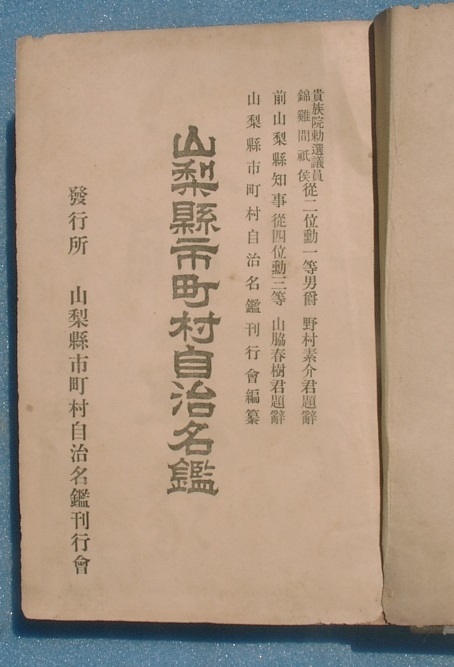 貴族院勅選議員
錦雞間祇侯從二位勳一等男爵 野村素介君題辭
前山梨縣知事從四位勳三等 山脇春樹君題辭
山梨縣市町村自治名鑑刊行會編纂
山梨縣市町村自治名鑑
發行所 山梨縣市町村自治名鑑刊行會